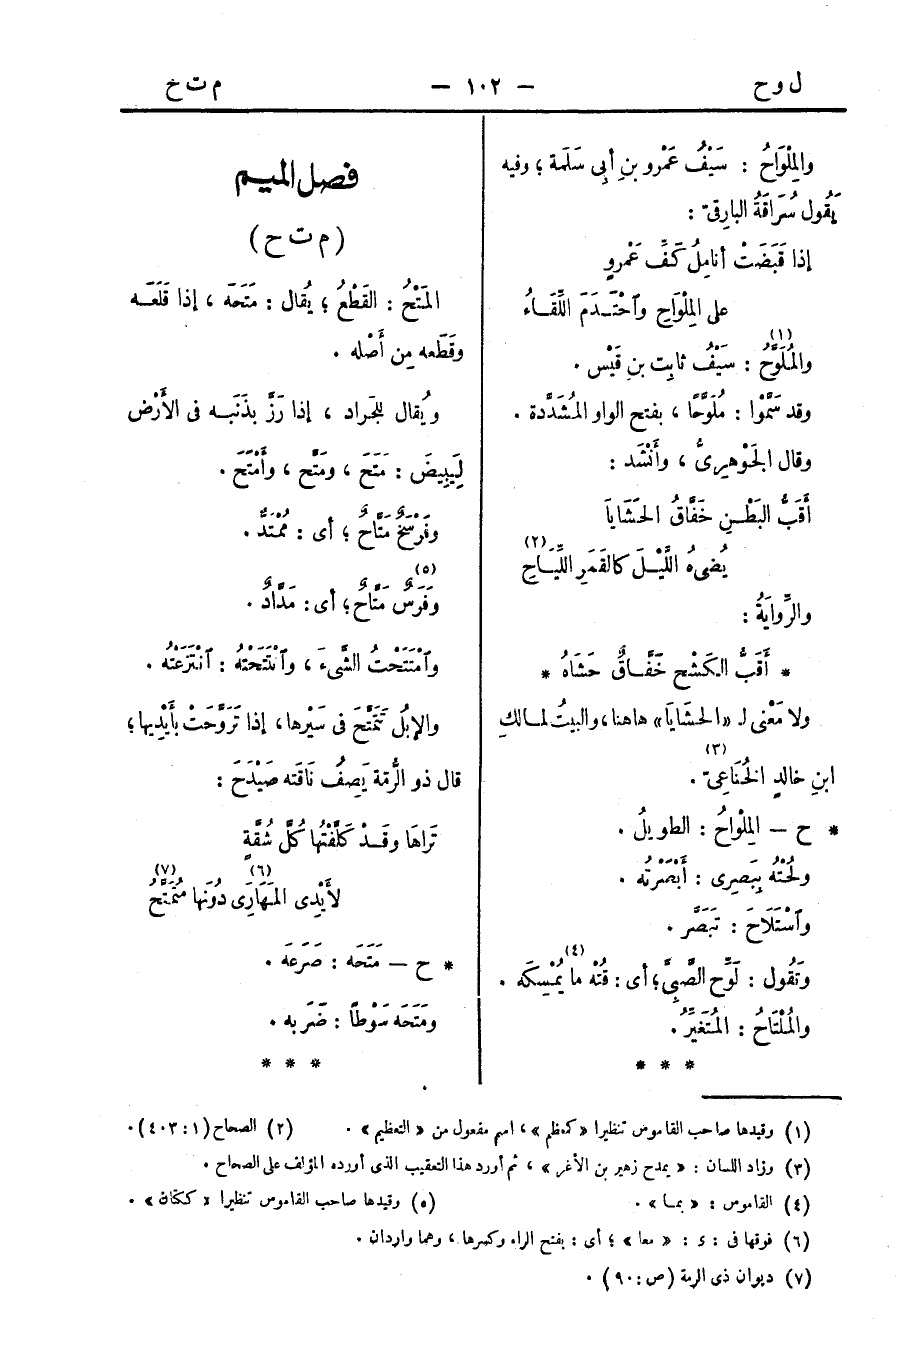 ل وح — ١٠٢ — م ت خ
والمِلْوَاحُ : سَيْفُ عَمْرو بنِ أبى سَلَمة ؛ وفيه
يَقُول سُرَاقَةُ البارِقىّ :
إذا قَبَضَتْ أنامِلُ كَفِّ عَمْرٍو
على المِلْوَاحِ وٱحْتَـدَمَ اللِّقَـاءُ
والمُلَوَّحُ (١) : سَيْفُ ثابِت بنِ قَيْس .
وقد سَمَّوْا : مُلَوَّحًا ، بفتح الواو المُشَدَّدة .
وقال الجَوْهرِىُّ ، وأَنْشَد :
أَقَبُّ البَطْـنِ خَفَّاقُ الحَشَايَا
يُضىءُ اللَّيْـلَ كالقَمَرِ اللِّيَـاحِ (٢)
والرِّوايَةُ :
* أَقَبُّ الكَشْحِ خَفَّـاقٌ حَشَاهُ *
ولا مَعْنى لـ «الحَشَايَا» هاهنا، والبيتُ لمـالكِ
ابنِ خالدٍ الخُنَاعِىّ (٣) .
* ح — المِلْواحُ : الطويلُ .
ولُحْتُه بِبَصرِى : أَبْصَرْتُه .
وٱسْتَلَاحَ : تَبَصَّر .
وتَقُول : لَوِّح الصَّبِىَّ ؛ أى : قُتْه ما (٤) يُمْسِكَه .
والمُلْتَاحُ : المُتَغَيِّرُ .
* * *
فصل الميـم
(م ت ح)
المَتْحُ : القَطْعُ ؛ يُقال : مَتَحَه ، إذا قَلَعَـه
وقَطَّعه مِن أَصْله .
ويُقال للجَراد ، إذا رَزَّ بذَنَبـه فى الأَرْض
لِيَبِيضَ : مَتَحَ ، ومَتَّح ، وأَمْتَحَ .
وفَرْسَخٌ مَتَّاحٌ ؛ أى : مُمْتَدٌّ .
وفَرَسٌ مَتَّاحٌ (٥) ؛ أى : مَدَّادٌ .
وٱمْتَتَحْتُ الشَّىءَ ، وٱنْتَتَحْتُه : ٱنْتَزَعْتُه .
والإبلُ تَتَمَتَّحَ فى سَيْرها، إذا تَرَوَّحَتْ بأَيْدِيها؛
قال ذو الرُّمّة يَصِفُ نَاقَته صَيْدَحَ :
تَراهَا وقَـدْ كَلَّفْتُها كُلَّ شُقَّةٍ
لأَيْدِى المَهَارَى (٦) دُونَها مُتَمَتَّحُ (٧)
* ح — مَتَحَه : صَرَعَه .
ومَتَحَه سَوْطًا : ضَرَبه .
* * *
(١) وقيدها صاحب القاموس تنظيرا «كمعظم» ، اسم مفعول من «التعظيم» . (٢) الصحاح (١ : ٤٠٣) .
(٣) وزاد اللسان : «يمدح زهير بن الأغر» ، ثم أورد هذا التعقيب الذى أورده المؤلف على الصحاح .
(٤) القاموس : «بمـا» . (٥) وقيدها صاحب القاموس تنظيرا «ككتان» .
(٦) فوقها فى : s : «معا» ؛ أى : بفتح الراء وكسرها ، وهما واردان .
(٧) ديوان ذى الرمة (ص : ٩٠) .